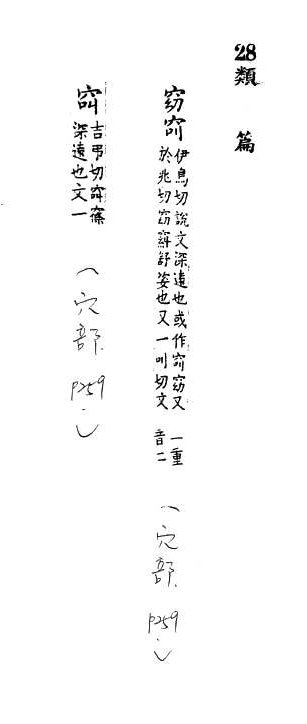 28類篇
窈窅伊鳥切說文深遠也或作窅窈又
於兆切窈窱舒姿也又一叫切文一重
音二
(穴部 P259.)
吉弔切窅窱
深遠也文一
(穴部 P259.)